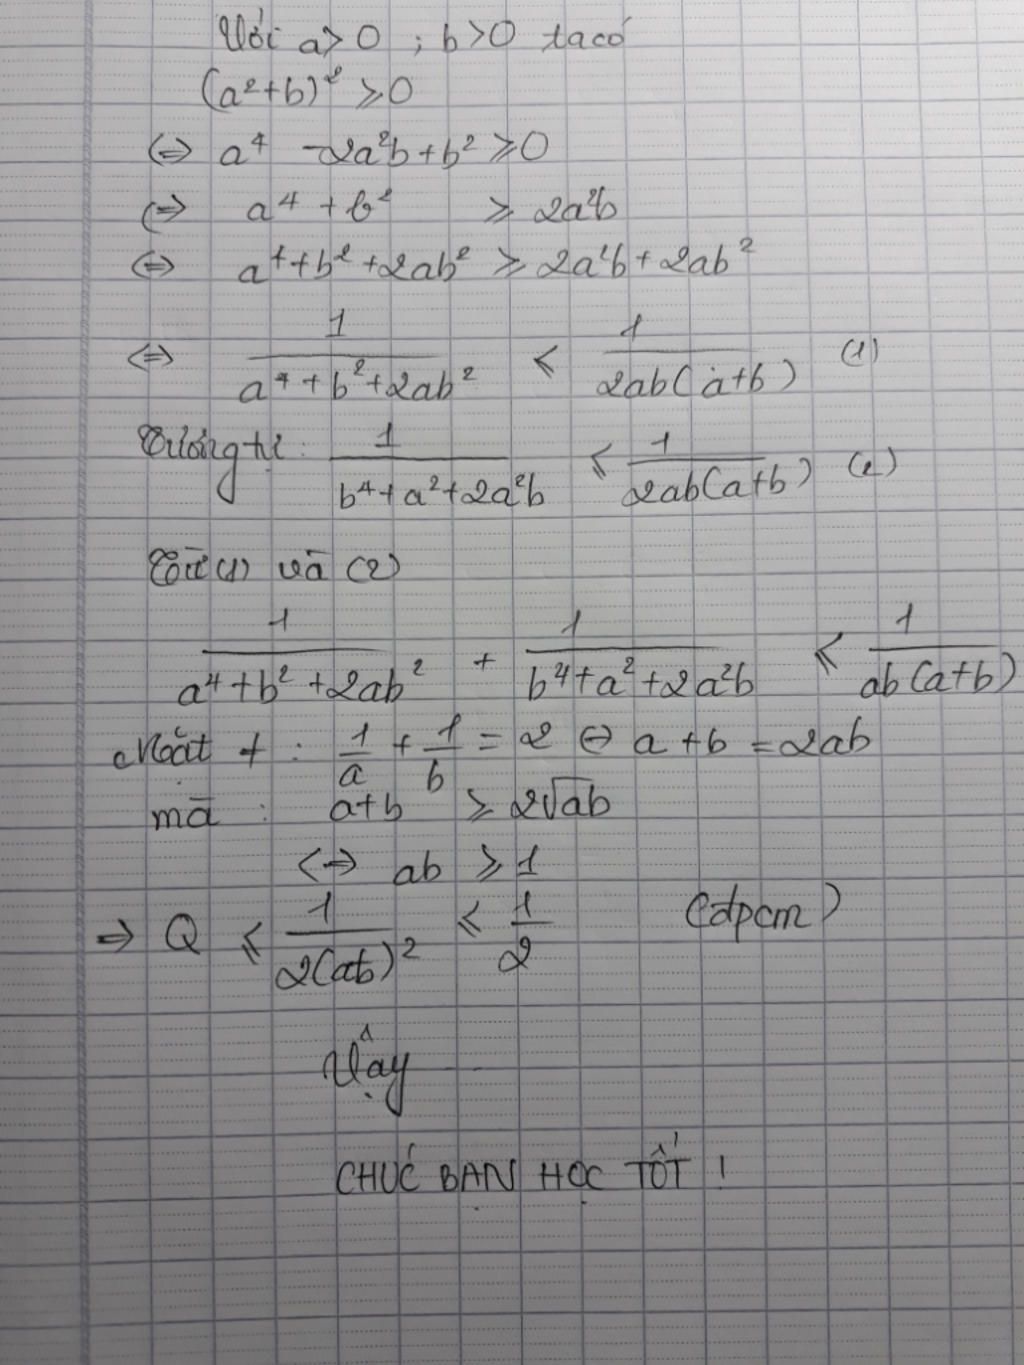 Với a > 0 ; b > 0 ta có
(a²+b)² ⩾ 0
⇔ a⁴ - 2a²b + b² ⩾ 0
⇔ a⁴ + b² ⩾ 2a²b
⇔ a⁴ + b² + 2ab² ⩾ 2a²b + 2ab²
⇔ 1/(a⁴ + b² + 2ab²) ⩽ 1/(2ab(a+b)) (1)
Tương tự : 1/(b⁴ + a² + 2a²b) ⩽ 1/(2ab(a+b)) (2)
Từ (1) và (2)
1/(a⁴ + b² + 2ab²) + 1/(b⁴ + a² + 2a²b) ⩽ 1/(ab(a+b))
Mặt ≠ : 1/a + 1/b = 2 ⇔ a + b = 2ab
mà : a+b ⩾ 2√ab
⇔ ab ⩾ 1
⇒ Q ⩽ 1/(2(ab)²) ⩽ 1/2 (đpcm)
Vậy
CHÚC BẠN HỌC TỐT !